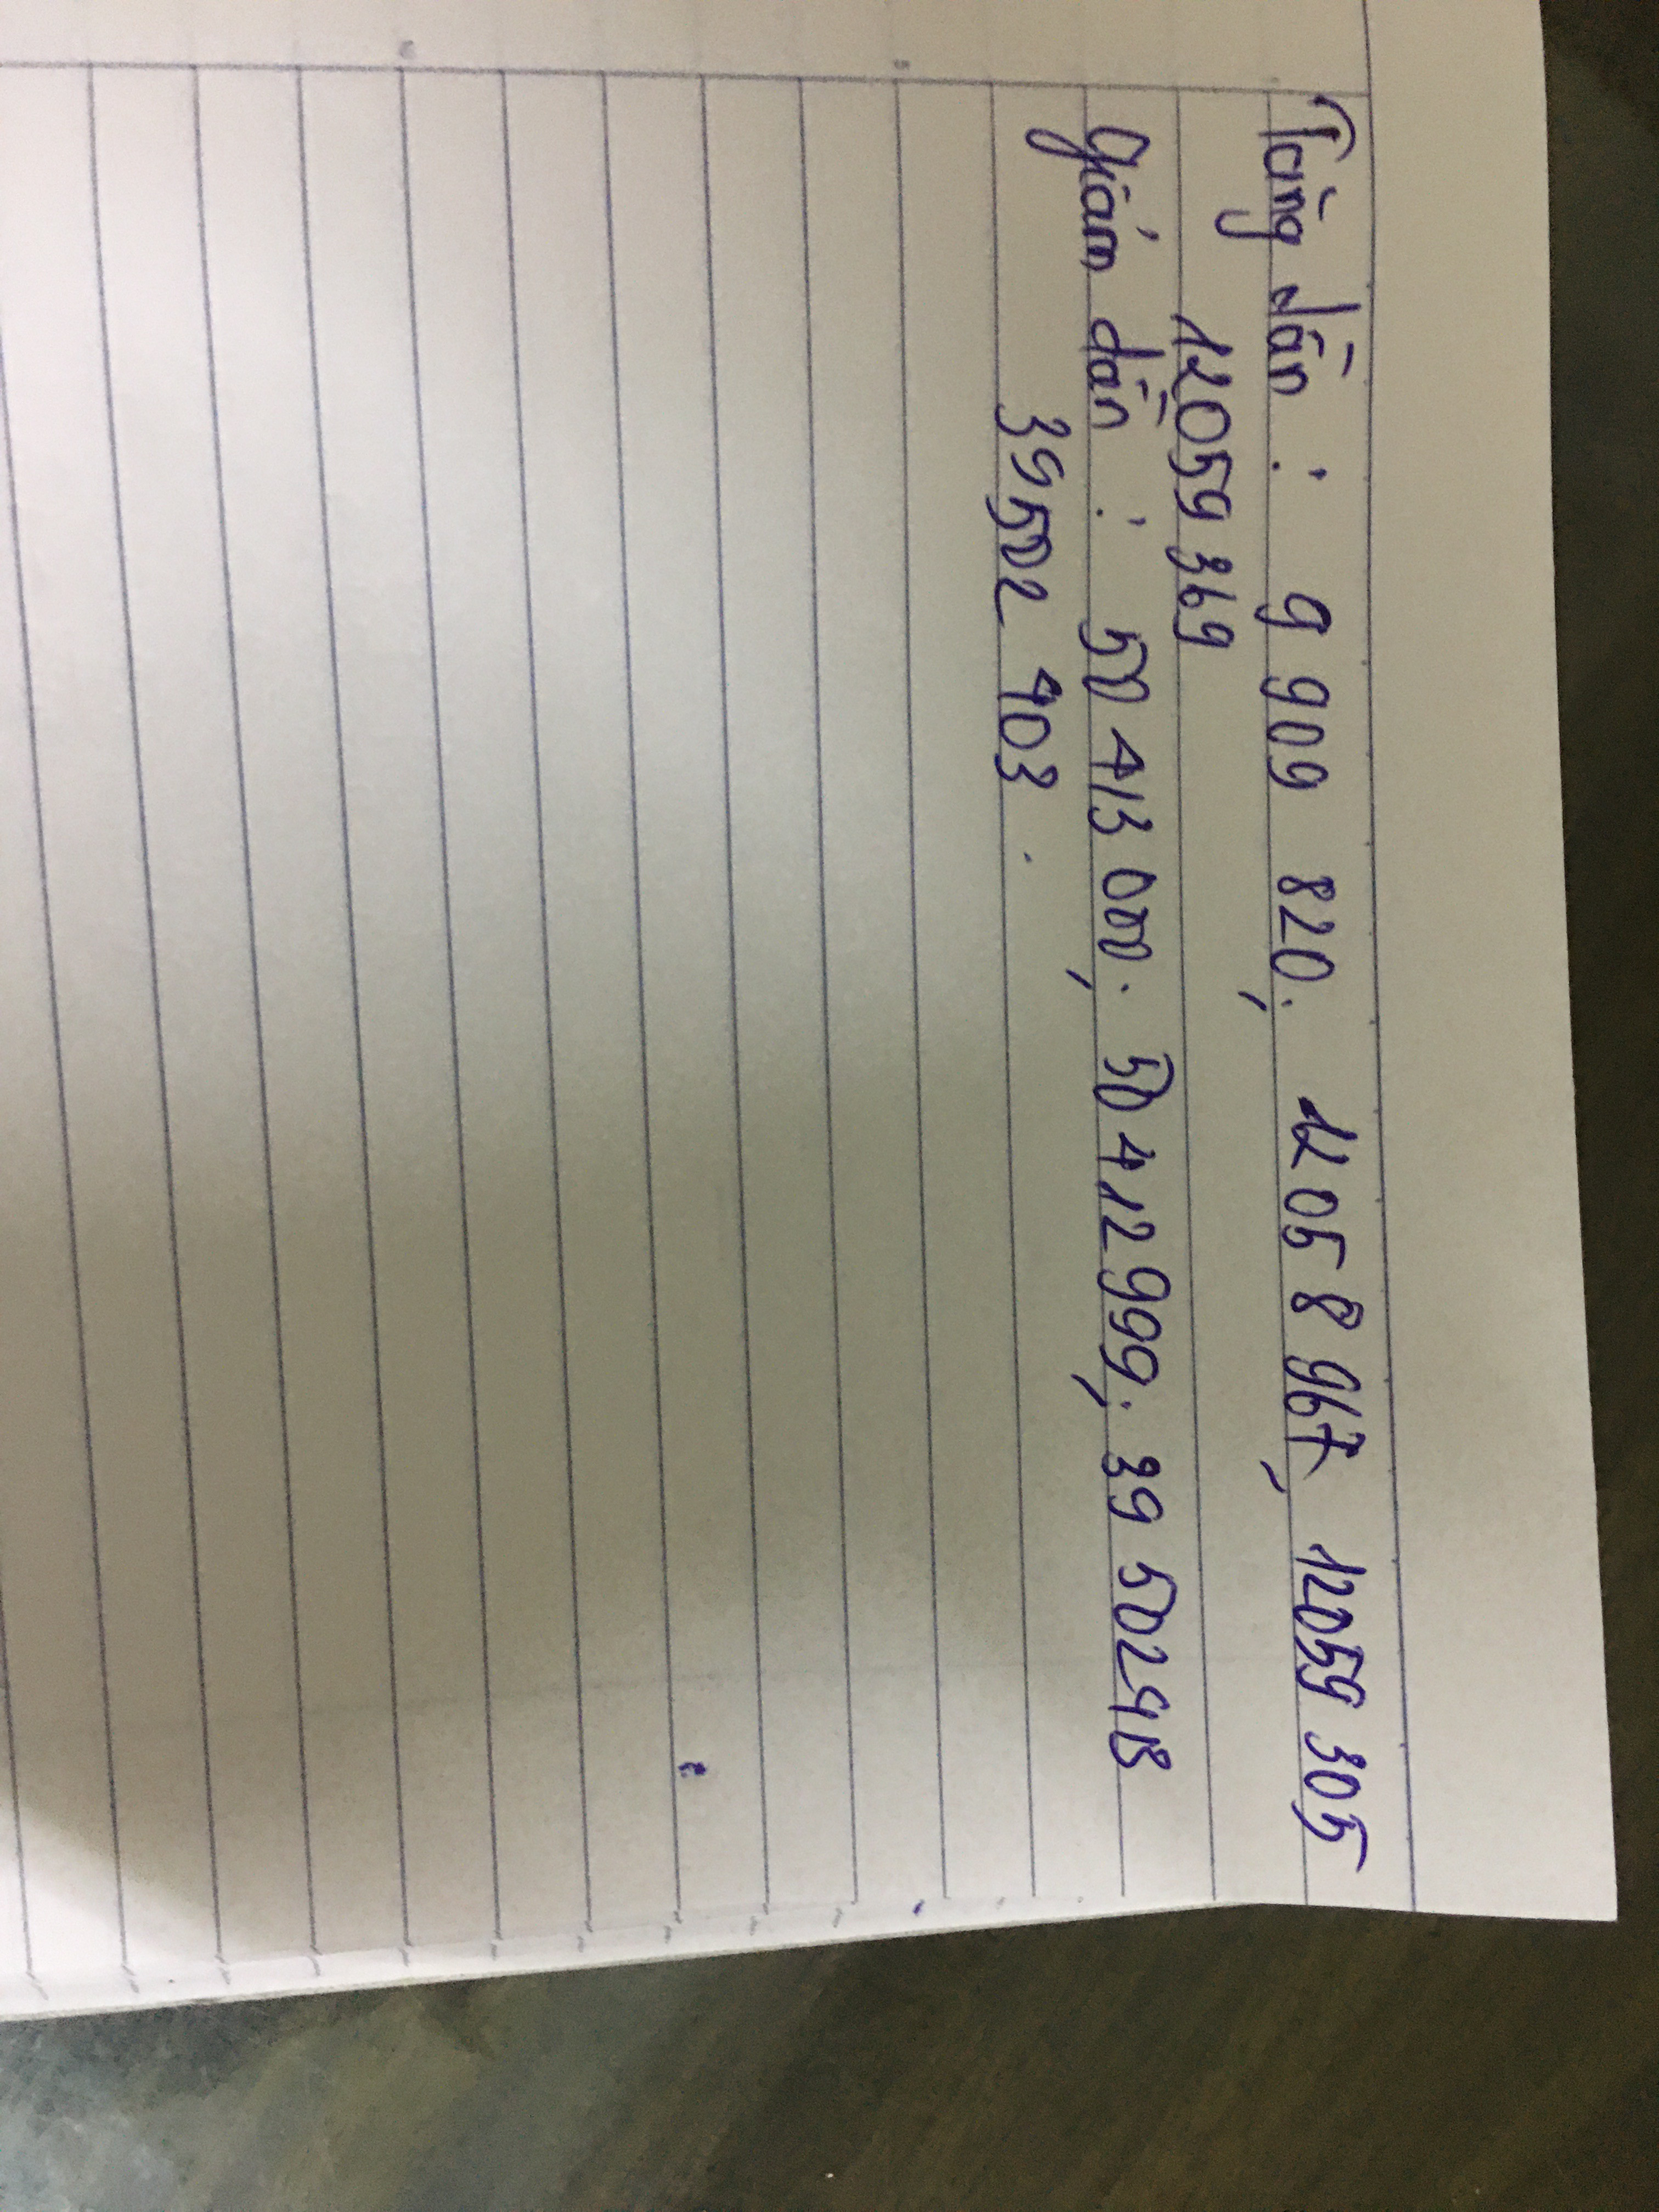 Tăng dần : 9 909 820; 12 058 967; 12059 305
12059 369
Giảm dần : 50 413 000; 50 412 999; 39 502 413
39 502 403.